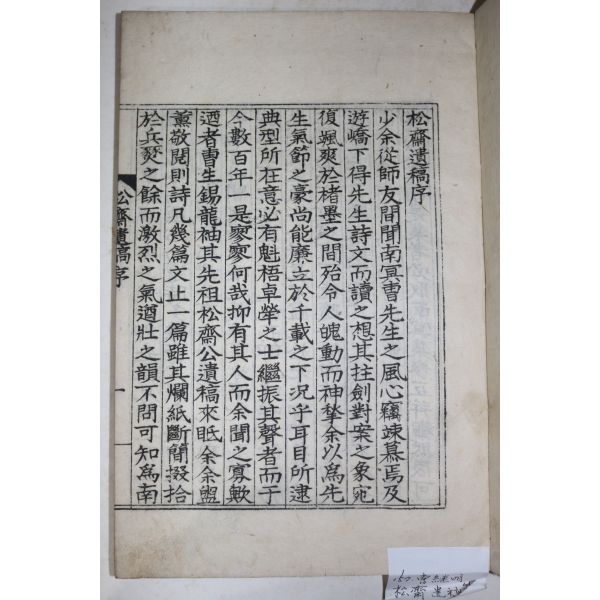 松齋遺稿序
少余從師友間聞南冥曺先生之風心竊竦慕焉及
遊嶠下得先生詩文而讀之想其拄劍對案之象宛
復颯爽於楮墨之間殆令人魄動而神搫余以爲先
生氣節之豪尚能廉立於千載之下況乎耳目所逮
典型所在意必有魁梧卓犖之士繼振其聲者而于
今數百年一是寥寥何哉抑有其人而余聞之寡歟
迺者曺生錫龍袖其先祖松齋公遺稿來眂余余盥
薰敬閱則詩凡幾篇文止一篇雖其爛紙斷簡掇拾
於兵燹之餘而激烈之氣遒壯之韻不問可知爲南
松齋遺稿序
一
松齋遺稿